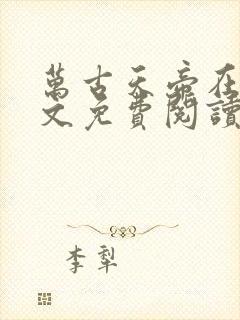 萬古天帝在
文免費閱讀
李犁